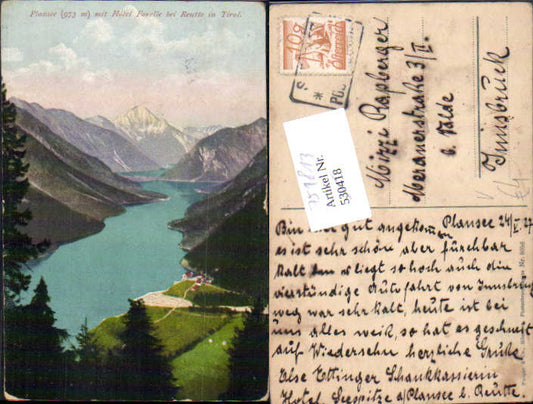 Plansee (973 m) mit Hôtel Forelle bei Reutte in Tirol.
10g
Österreich
Artikel Nr.
530418
Mizzi Raßberger
Meranerstraße 3/II.
b. Kalde
Innsbruck
Plansee 24/V. 27
Bin gut angekommen
es ist sehr schön aber furchbar
kalt liegt so hoch auch die
vierstündige Autofahrt von Innsbruck
weg war sehr kalt, heute ist bei
uns alles weiß, so hat es geschneit
auf Wiedersehn herzliche Grüße
Else Ettinger Schankkassierin
Hotel Seespitze a/Plansee b. Reutte.